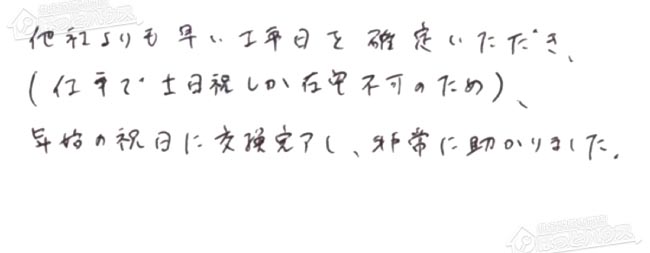 他社よりも早い工事日を確定いただき、
(仕事で土日祝しか在宅不可のため)、
年始の祝日に交換完了し、非常に助かりました。